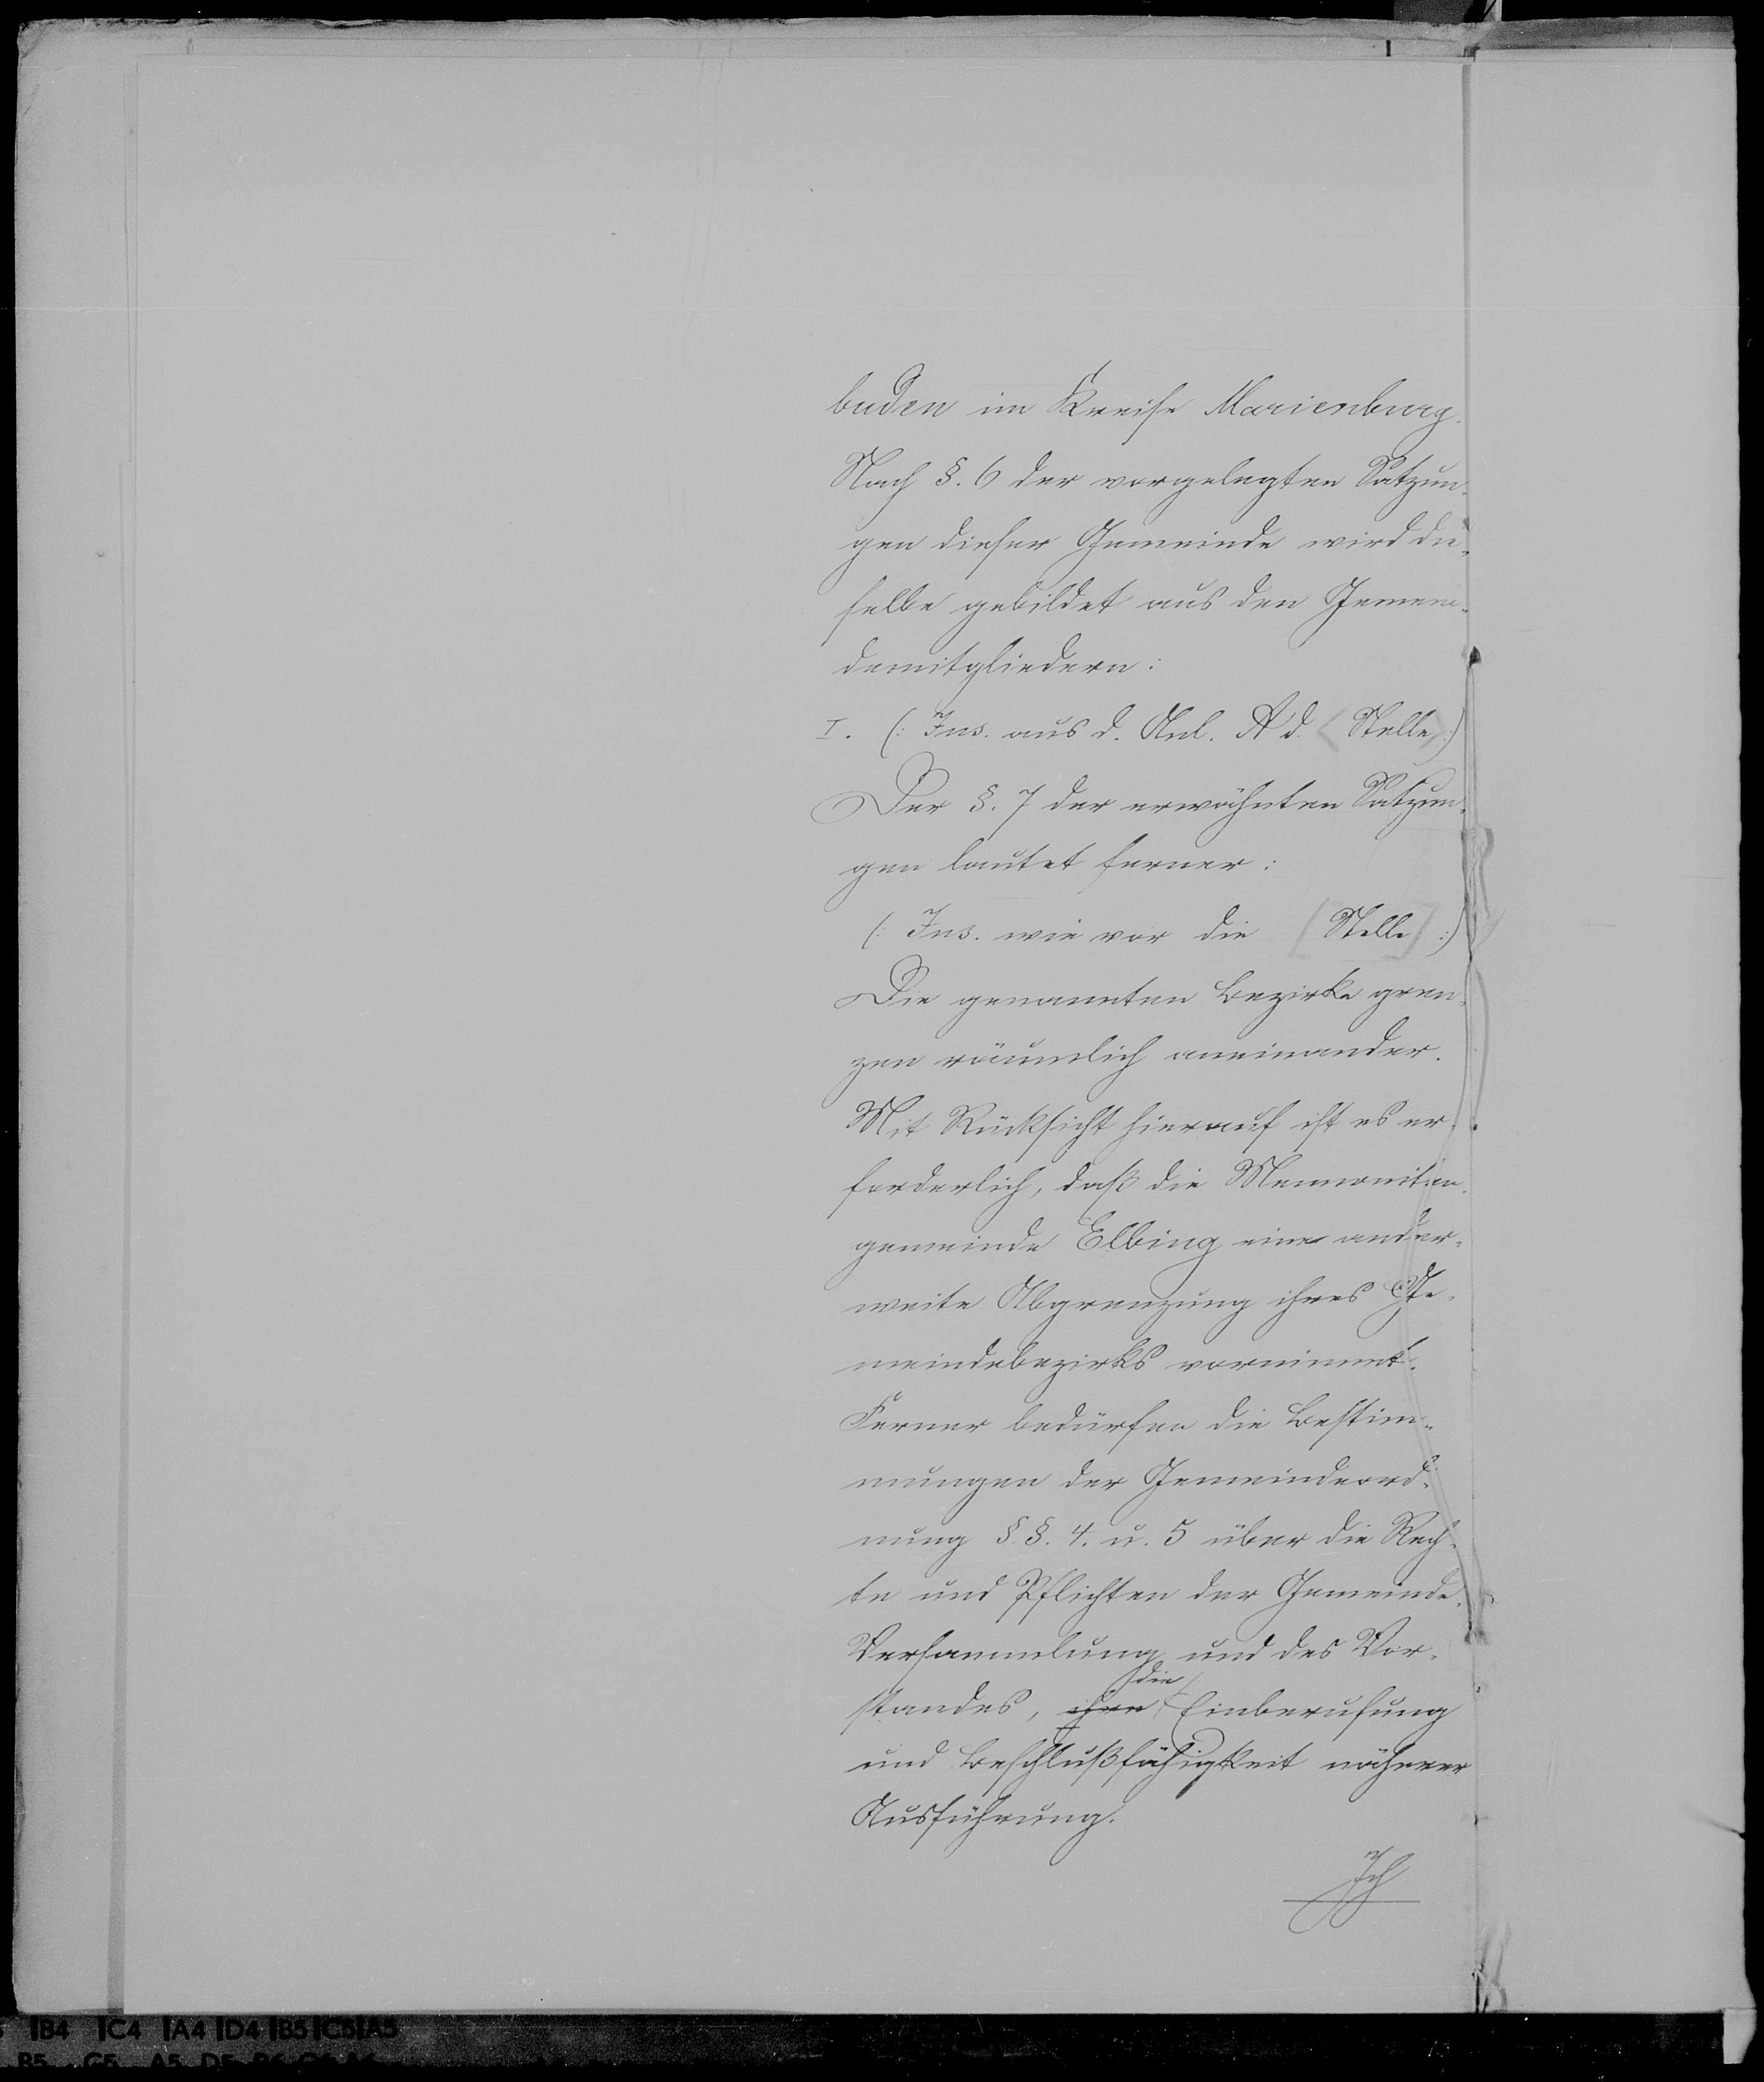 buden im Kreise Marienburg.
Nach §. 6 der vorgelegten Satzun-
gen dieser Gemeinde wird die-
selbe gebildet aus den Gemein-
demitgliedern:
I. (: Ins. aus d. Anl. A d. <Stelle> :)
Der §. 7 der erwähnten Satzun-
gen lautet ferner:
(: Ins. wie vor die [Stelle] :)
Die genannten Bezirke gren-
zen räumlich aneinander.
Mit Rücksicht hierauf ist es er-
forderlich, daß die Mennoniten-
gemeinde Elbing eine ander-
weite Abgrenzung ihres Ge-
meindebezirks vornimmt.
Ferner bedürfen die Bestim-
mungen der Gemeindeord-
nung §.§. 4. u. 5 über die Rech-
te und Pflichten der Gemeinde-
Versammlung und des Vor-
die
standes, ihre Einberufung
und Beschlußfähigkeit näherer
Ausführung.
Ich
B4 C4 A4 D4 B5 C5 A5